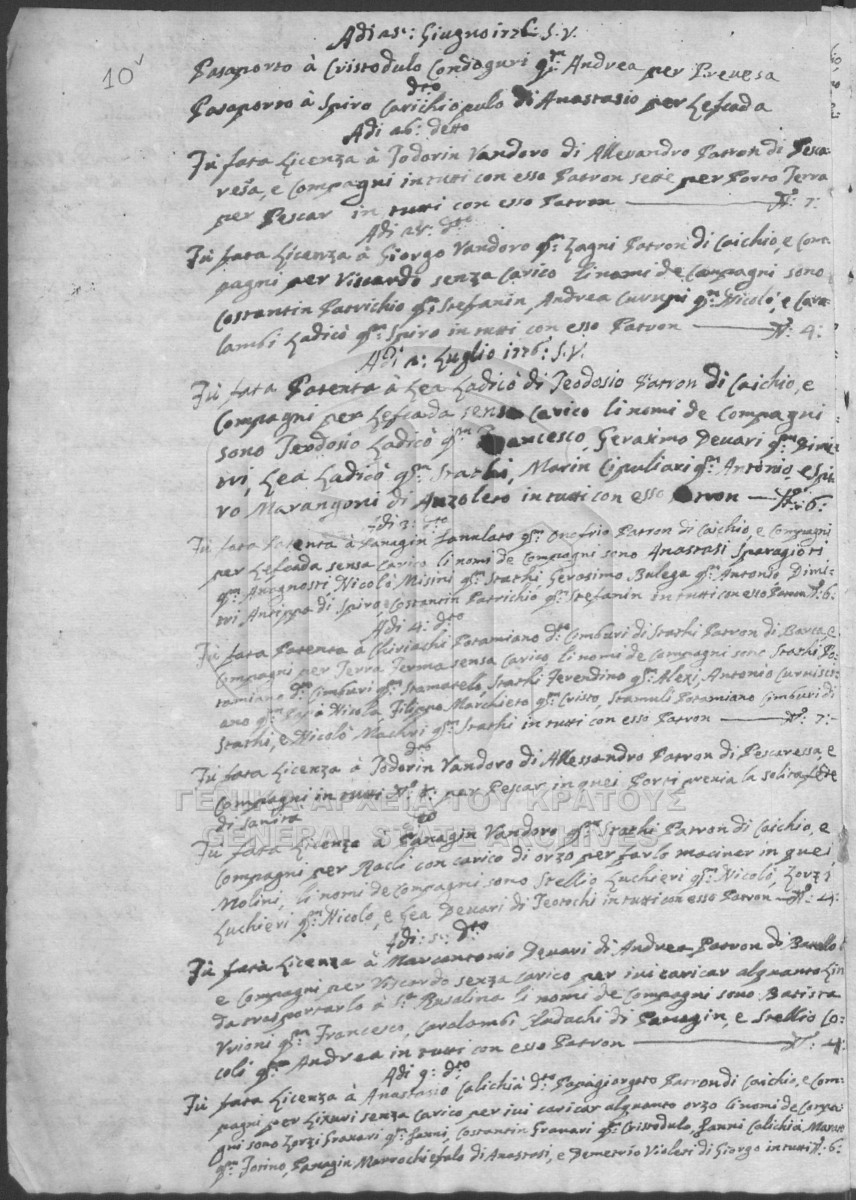 10
Adi 25: Giugno 1776: S.V.
Pasaporto à Cristodulo Condoguri qm Andrea per Prevesa
dto
Pasaporto à Spiro Carichiopulo di Anastasio per Lefcada
Adi 26: detto
Fù fata Licenza à Todorin Vandoro di Allessandro Patron di Pesca-
ressa, e Compagni in tutti con esso Patron sette per Porto Terra
per Pescar in tutti con esso Patron — No: 7:
Adi dto
Fù fata Licenza à Giorgo Vandoro qm: Zagni Patron di Caichio, e Com-
pagni per Viscardo senza Carico li nomi de Compagni sono
Costantin Patrichio qm: Stefanin, Andrea Curupi qm Nicolò, e Cara-
lambi Ladicò qm: Spiro in tutti con esso Patron — No: 4:
Adi 2: Luglio 1776: S.V.
Fù fata Patenta à Lea Ladicò di Teodosio Patron di Caichio, e
Compagni per Lefcada senza Carico li nomi de Compagni
sono Teodosio Ladicò qm Francesco, Gerasimo Devari qm Dimi-
tri, Lea Ladicò qm Stathi, Marin Cipuliari qm: Antonio, e Spi-
ro Marangoni di Anzoleto in tutti con esso Patron — No: 6:
Adi 3: dto
Fù fata Patenta à Panagin qm: Onofrio Patron di Caichio, e Compagni
per Lefcada senza Carico li nomi de Compagni sono Anastasi Sparagioti
qm Anagnosti, Nicolò Misini qm: Stathi Gerasimo Bulega qm: Antonio Dimi-
tri Antippa di Spiro e Costantin Patrichio qm: Stefanin in tutti con esso Patron No: 6:
Adi 4: dto
Fù fata Patenta à Chiriachi Potamiano dto Comburi di Stathi Patron di Barca, e
Compagni per Terra Ferma senza Carico li nomi de Compagni sono Stathi Po-
tamiano dto Comburi qm: Stamatelo, Stathi Ferendino qm: Alexi, Antonio
ano qm: Papà Nicola, Filippo Marchieto qm: Cristo, Stamuli Potamiano Comburi di
Stathi, e Nicolò Machri qm: Stathi in tutti con esso Patron — No: 7:
dto
Fù fata Licenza à Todorin Vandoro di Allessandro Patron di Pescaressa, e
Compagni in tutti No 8: per Pescar in quei Porti previa la solita fede
di Sanità
dto
Fù fata Licenza à Panagin Vandoro qm Stathi Patron di Caichio, e
Compagni per Racli con carico di orzo per farlo maciner in quei
Molini, li nomi de Compagni sono Stellio Luchieri qm: Nicolò, Zorzi
Luchieri qm: Nicolo, e Lea Devari di Teotochi in tutti con esso Patron — No: 4:
Adi: 5: dto
Fù fata Licenza à Marcantonio Devari di Andrea Patron di Batello
e Compagni per Viscardo senza Carico per ivi caricar alquanto Lin
da trasportarlo à Sta Rusalina li nomi de Compagni sono Batista
Vrioni qm Francesco, Caralambi Vladachi di Panagin, e Stellio Co-
coli qm Andrea in tutti con esso Patron — No: 4:
Adi 9: dto
Fù fata Licenza à Anastasio Calichia dto Papagiorgato Patron di Caichio, e Com-
pagni per Lixuri senza carico per ivi caricar alquanto orzo li nomi de Compa-
gni sono Zorzi Gravari qm: Janni, Costantin Gravari qm: Cristodulo, Janni Calichia
qm Torino, Panagin Marrochiefalo di Anastasi, e Demetrio Violeti di Giorgo in tutti No: 6:
ΓΕΝΙΚΑ ΑΡΧΕΙΑ ΤΟΥ ΚΡΑΤΟΥΣ
GENERAL STATE ARCHIVES